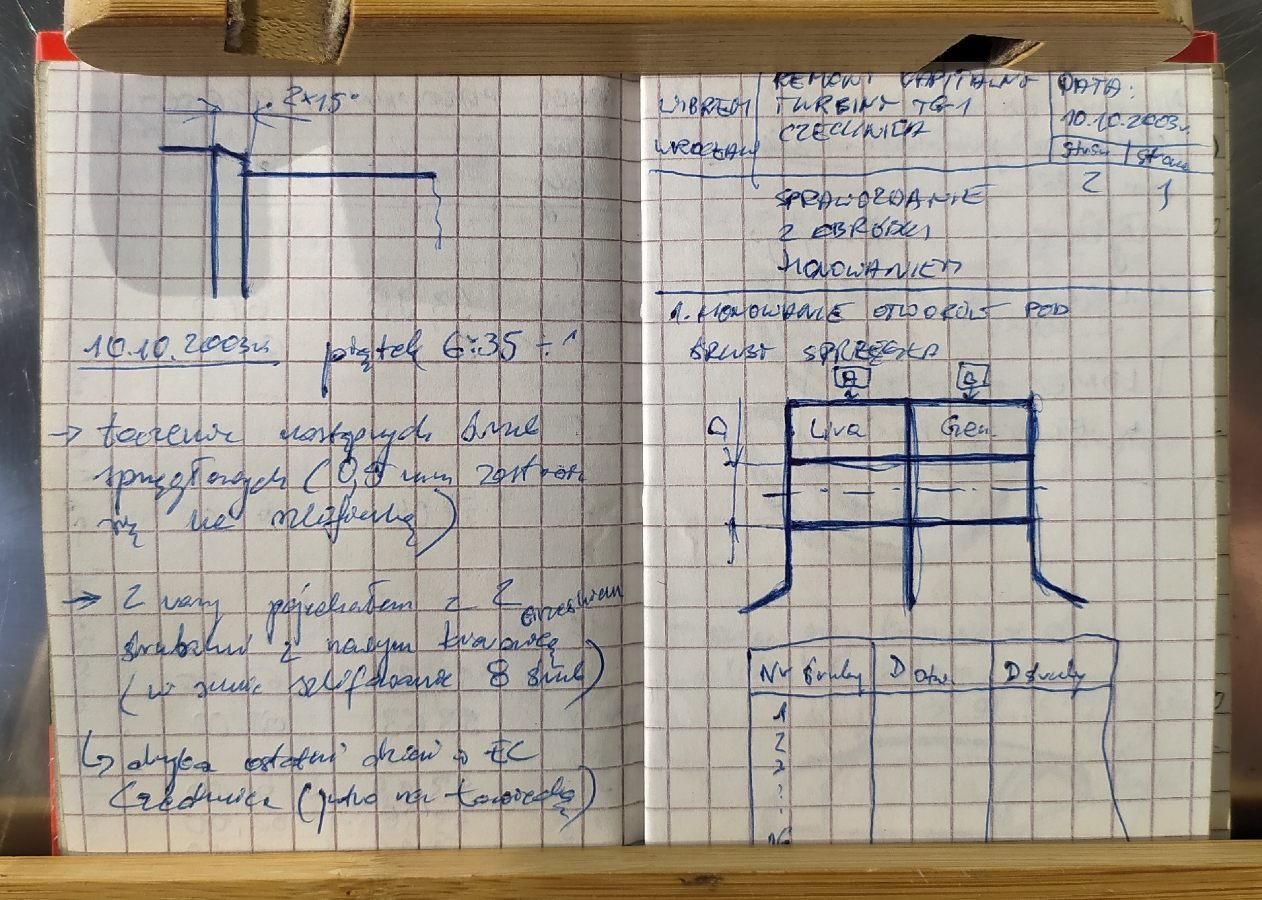 2×15°
10.10.2003r. piątek 6:35 ÷
→ toczenie następnych śrub
sprzęgłowych (0,5 mm
się na szlifierkę)
→ Z
śrubami z
(w sumie szlifowanie 8 śrub)
↳ chyba ostatni dzień w EC
Czechnica (jutro na
WROCŁAW
REMONT KAPITALNY
TURBINY TG-1
CZECHNICA
DATA:
10.10.2003r.
Stron Strona
2 1
SPRAWOZDANIE
Z OBRÓBKI
HONOWANIEM
1. HONOWANIE OTWORÓW POD
ŚRUBY SPRZĘGŁA
D
Gen.
Nr śruby D otw. D śruby
1
2
3
:
:
16